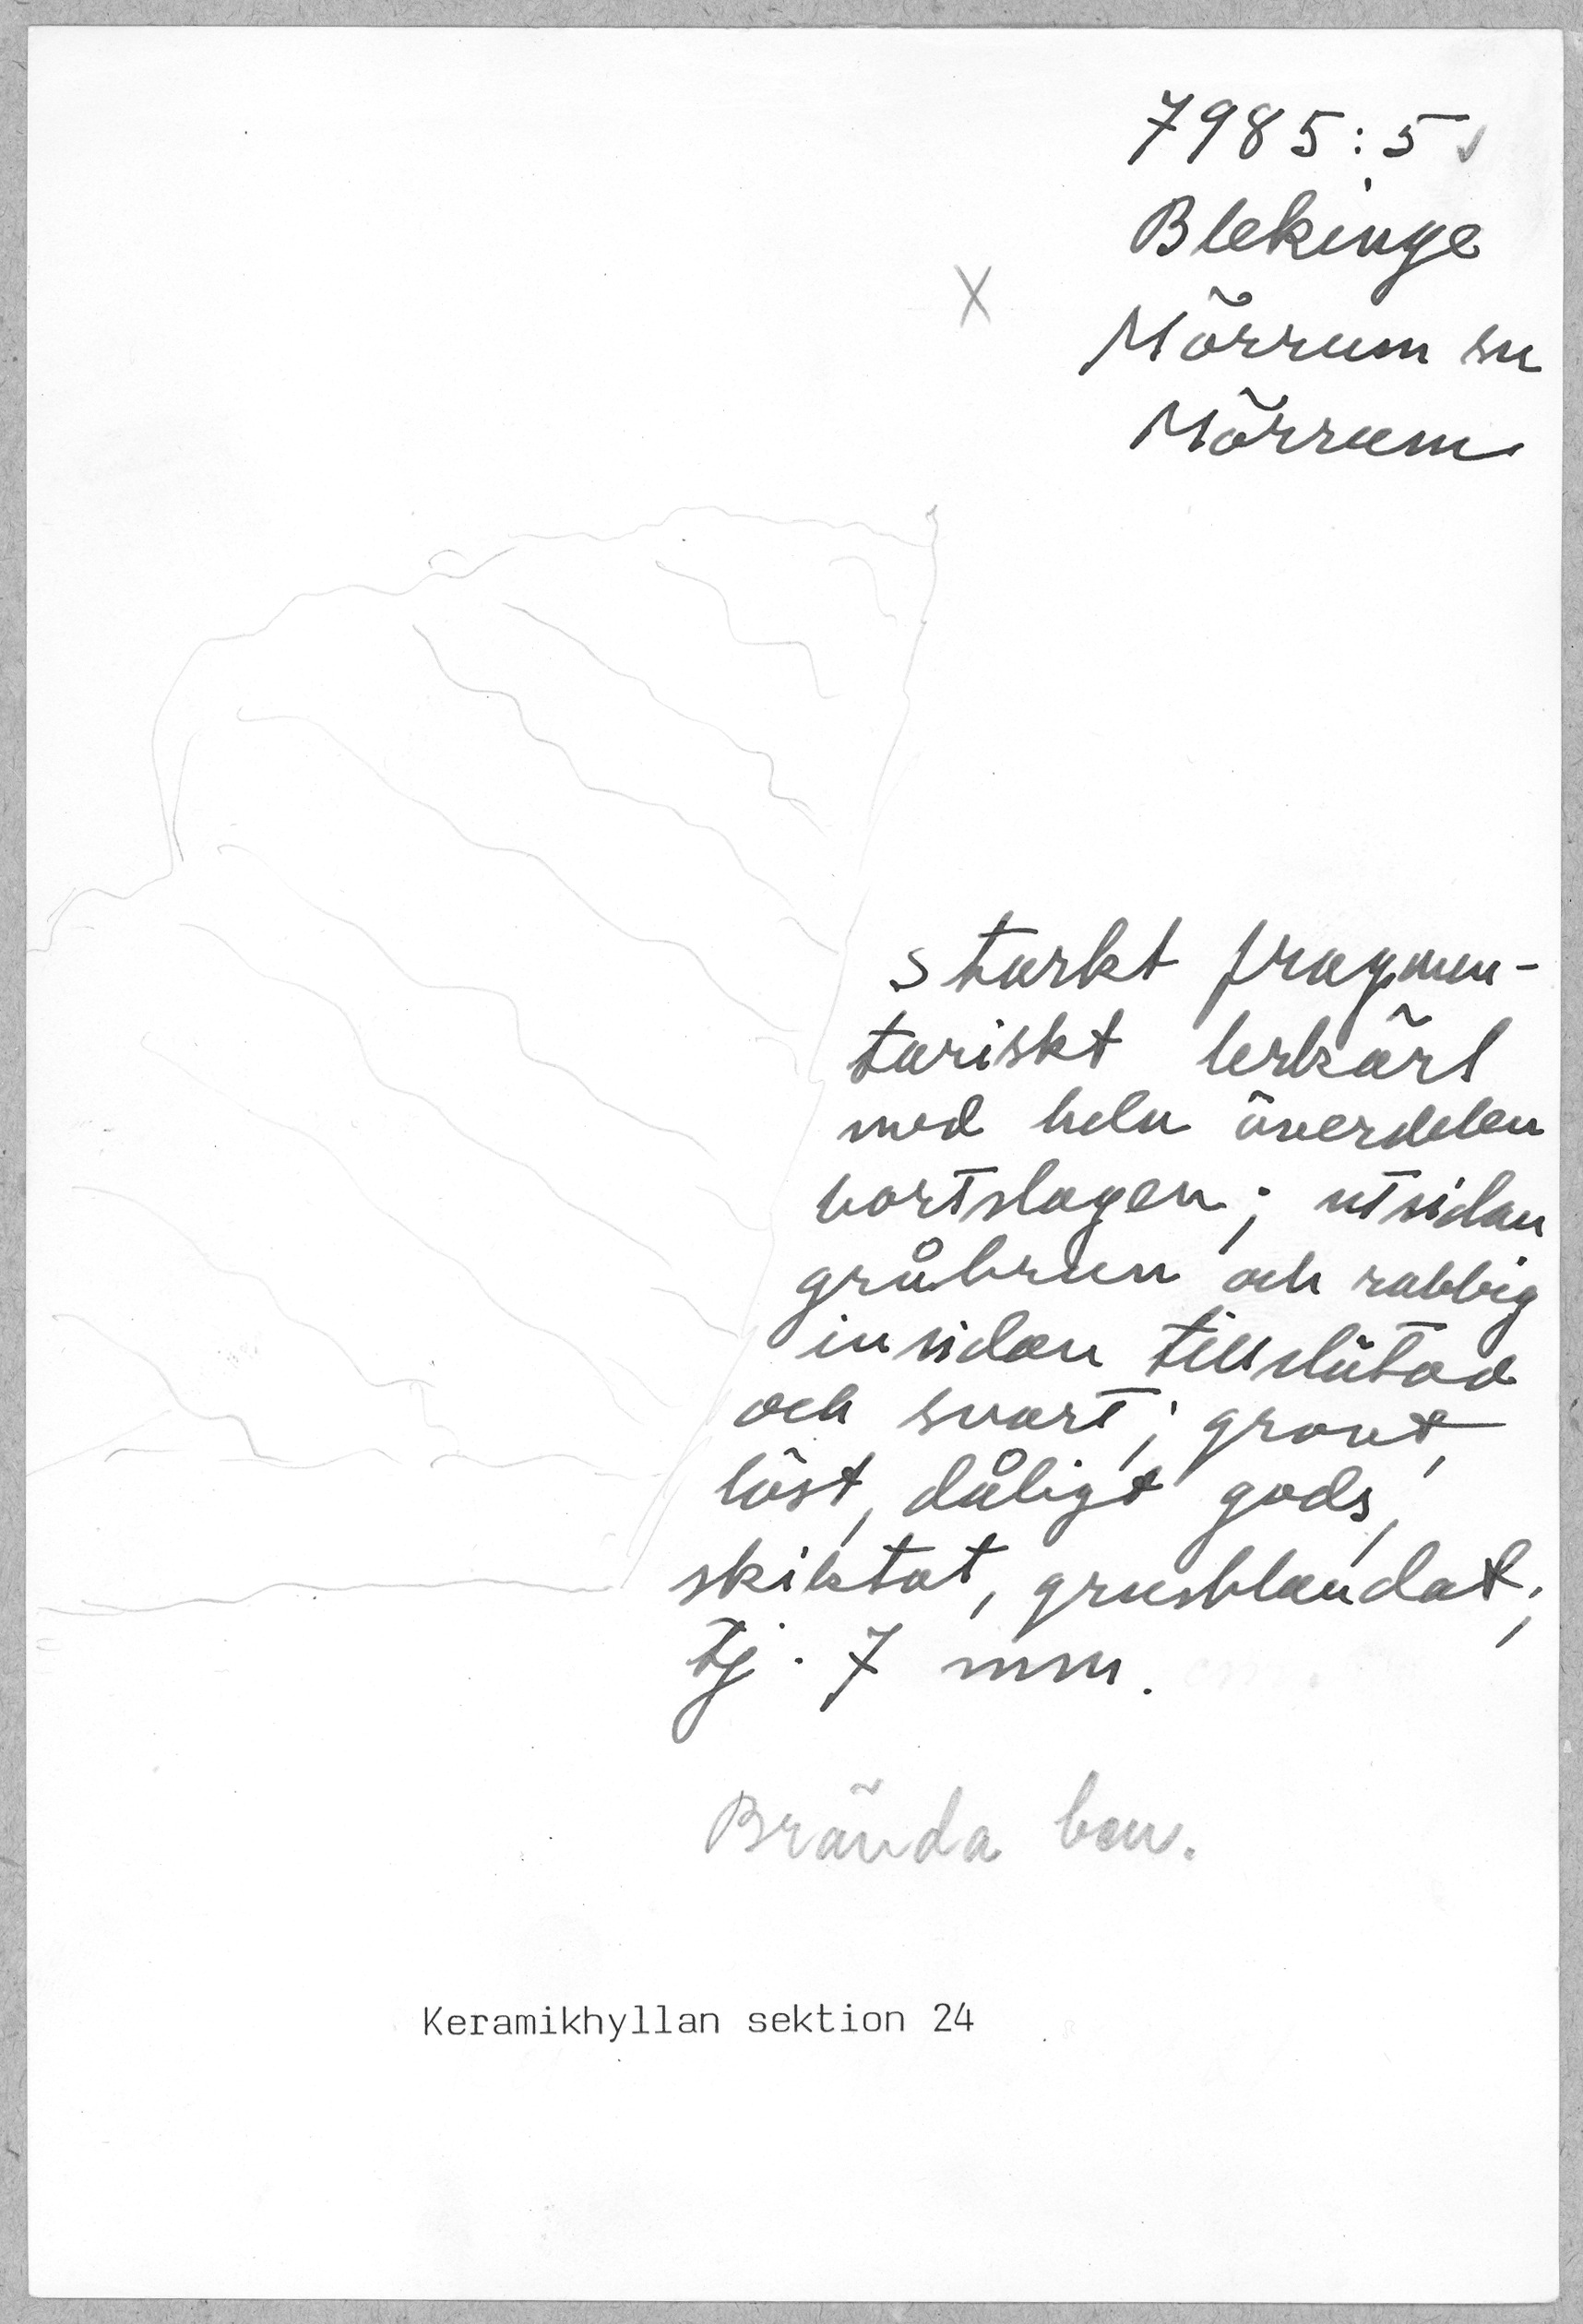 7985:5 ✓
Blekinge
X
Mörrum sn
Mörrum
starkt fragmen-
tariskt lerkärl
med hela överdelen
bortslagen; utsidan
gråbrun och rabbig
insidan tillslätad
och svart; grovt,
löst, dåligt gods,
skiktat, grusblandat;
tj. 7 mm.
Brända ben.
Keramikhyllan sektion 24